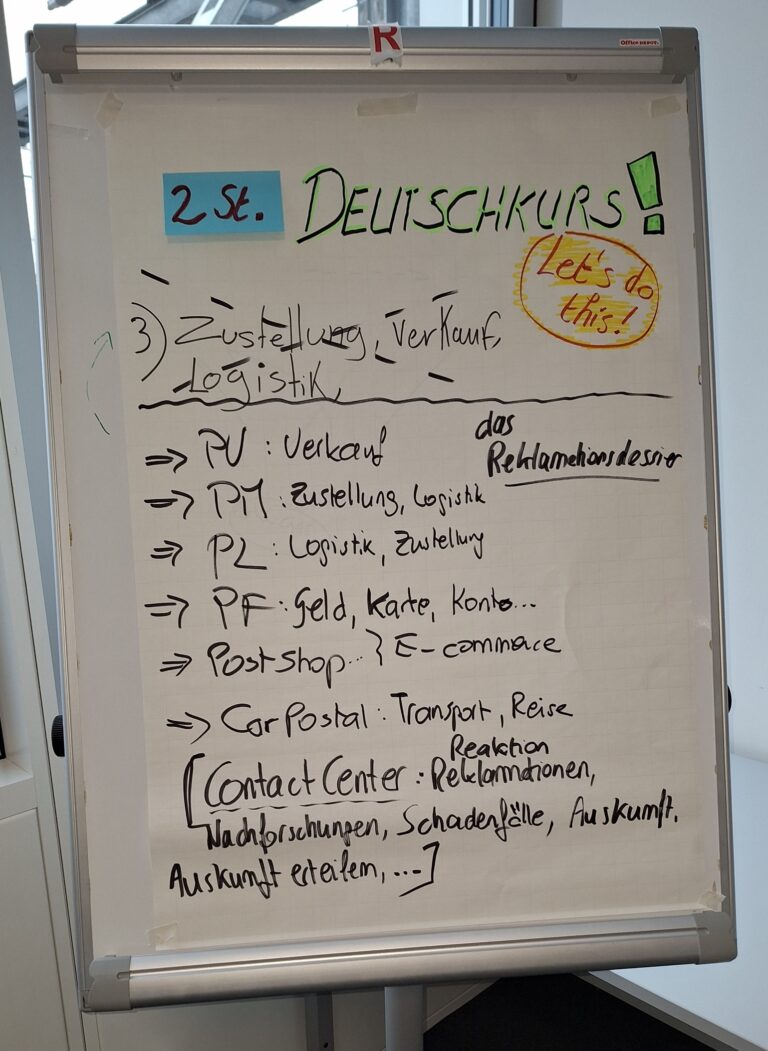 R
Office DEPOT.
2 St. DEUTSCHKURS!
Let's do
this!
3) Zustellung, Verkauf,
Logistik,
das
Reklamationsdossier
=> PV : Verkauf
=> PM : Zustellung, Logistik
=> PL : Logistik, Zustellung
=> PF : Geld, Karte, Konto...
=> Postshop... } E-commace
=> CarPostal : Transport, Reise
Reaktion
[Contact Center : Reklamationen,
Nachforschungen, Schadenfälle, Auskunft.
Auskunft erteilem, ...]